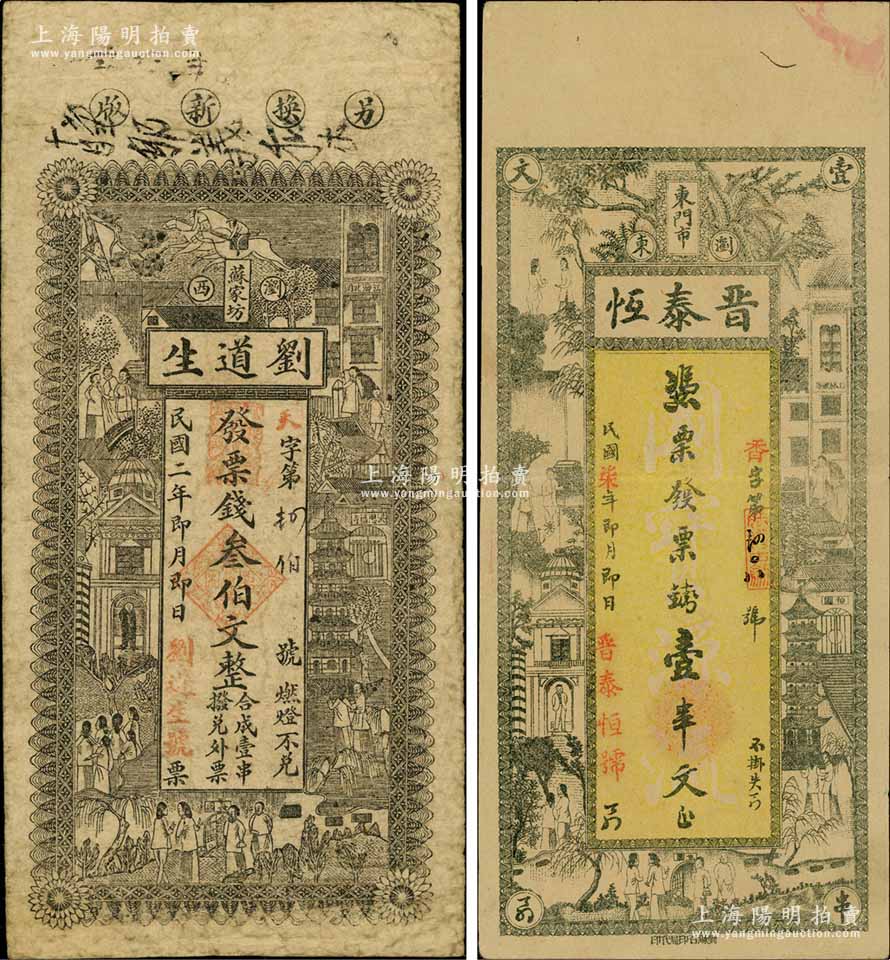 上海陽明拍賣
www.yangmingauction.com
另換新版
瀏西
蘇家坊
劉道生
天字第 號 燃燈不兑
發票錢叁伯文整
合成壹串
撥兑外票
民國二年即月即日
劉道生號
票
上海陽明拍賣
www.yangmingauction.com
壹文
東門市
瀏東
晋泰恒
香字第 號
不掛失
憑票發票錢壹串文
民國柒年即月即日
晋泰恒號
串
石印局代印
上海陽明拍賣
www.yangmingauction.com
上海陽明拍賣
www.yangmingauction.com